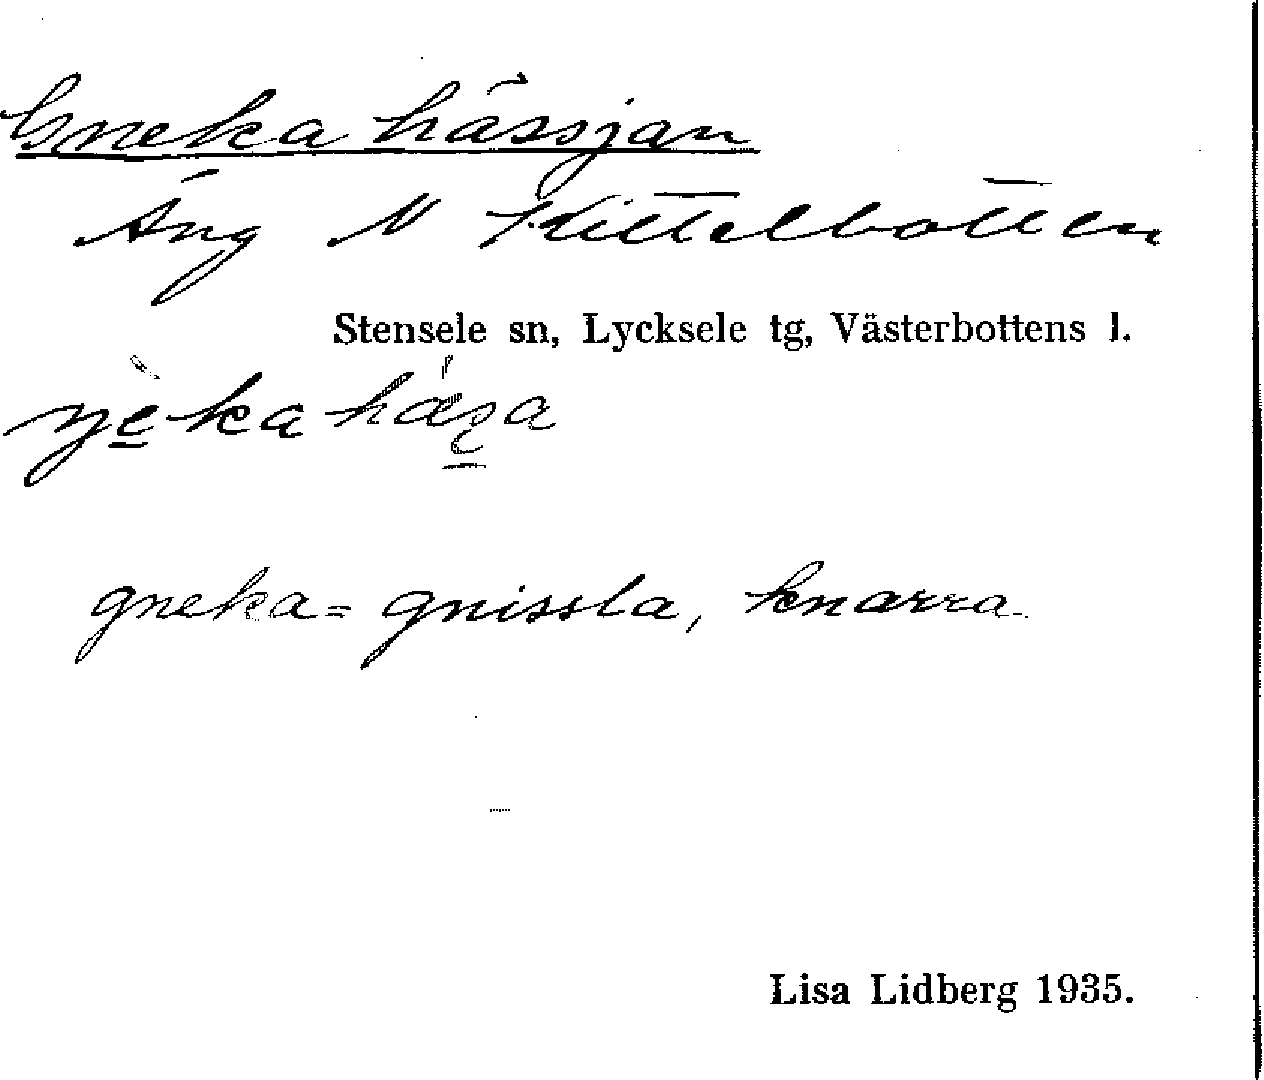 Gneka hässjan
Äng N Kittelbotten
Stensele sn, Lycksele tg, Västerbottens l.
gneka = gnissla, knarra.
Lisa Lidberg 1935.